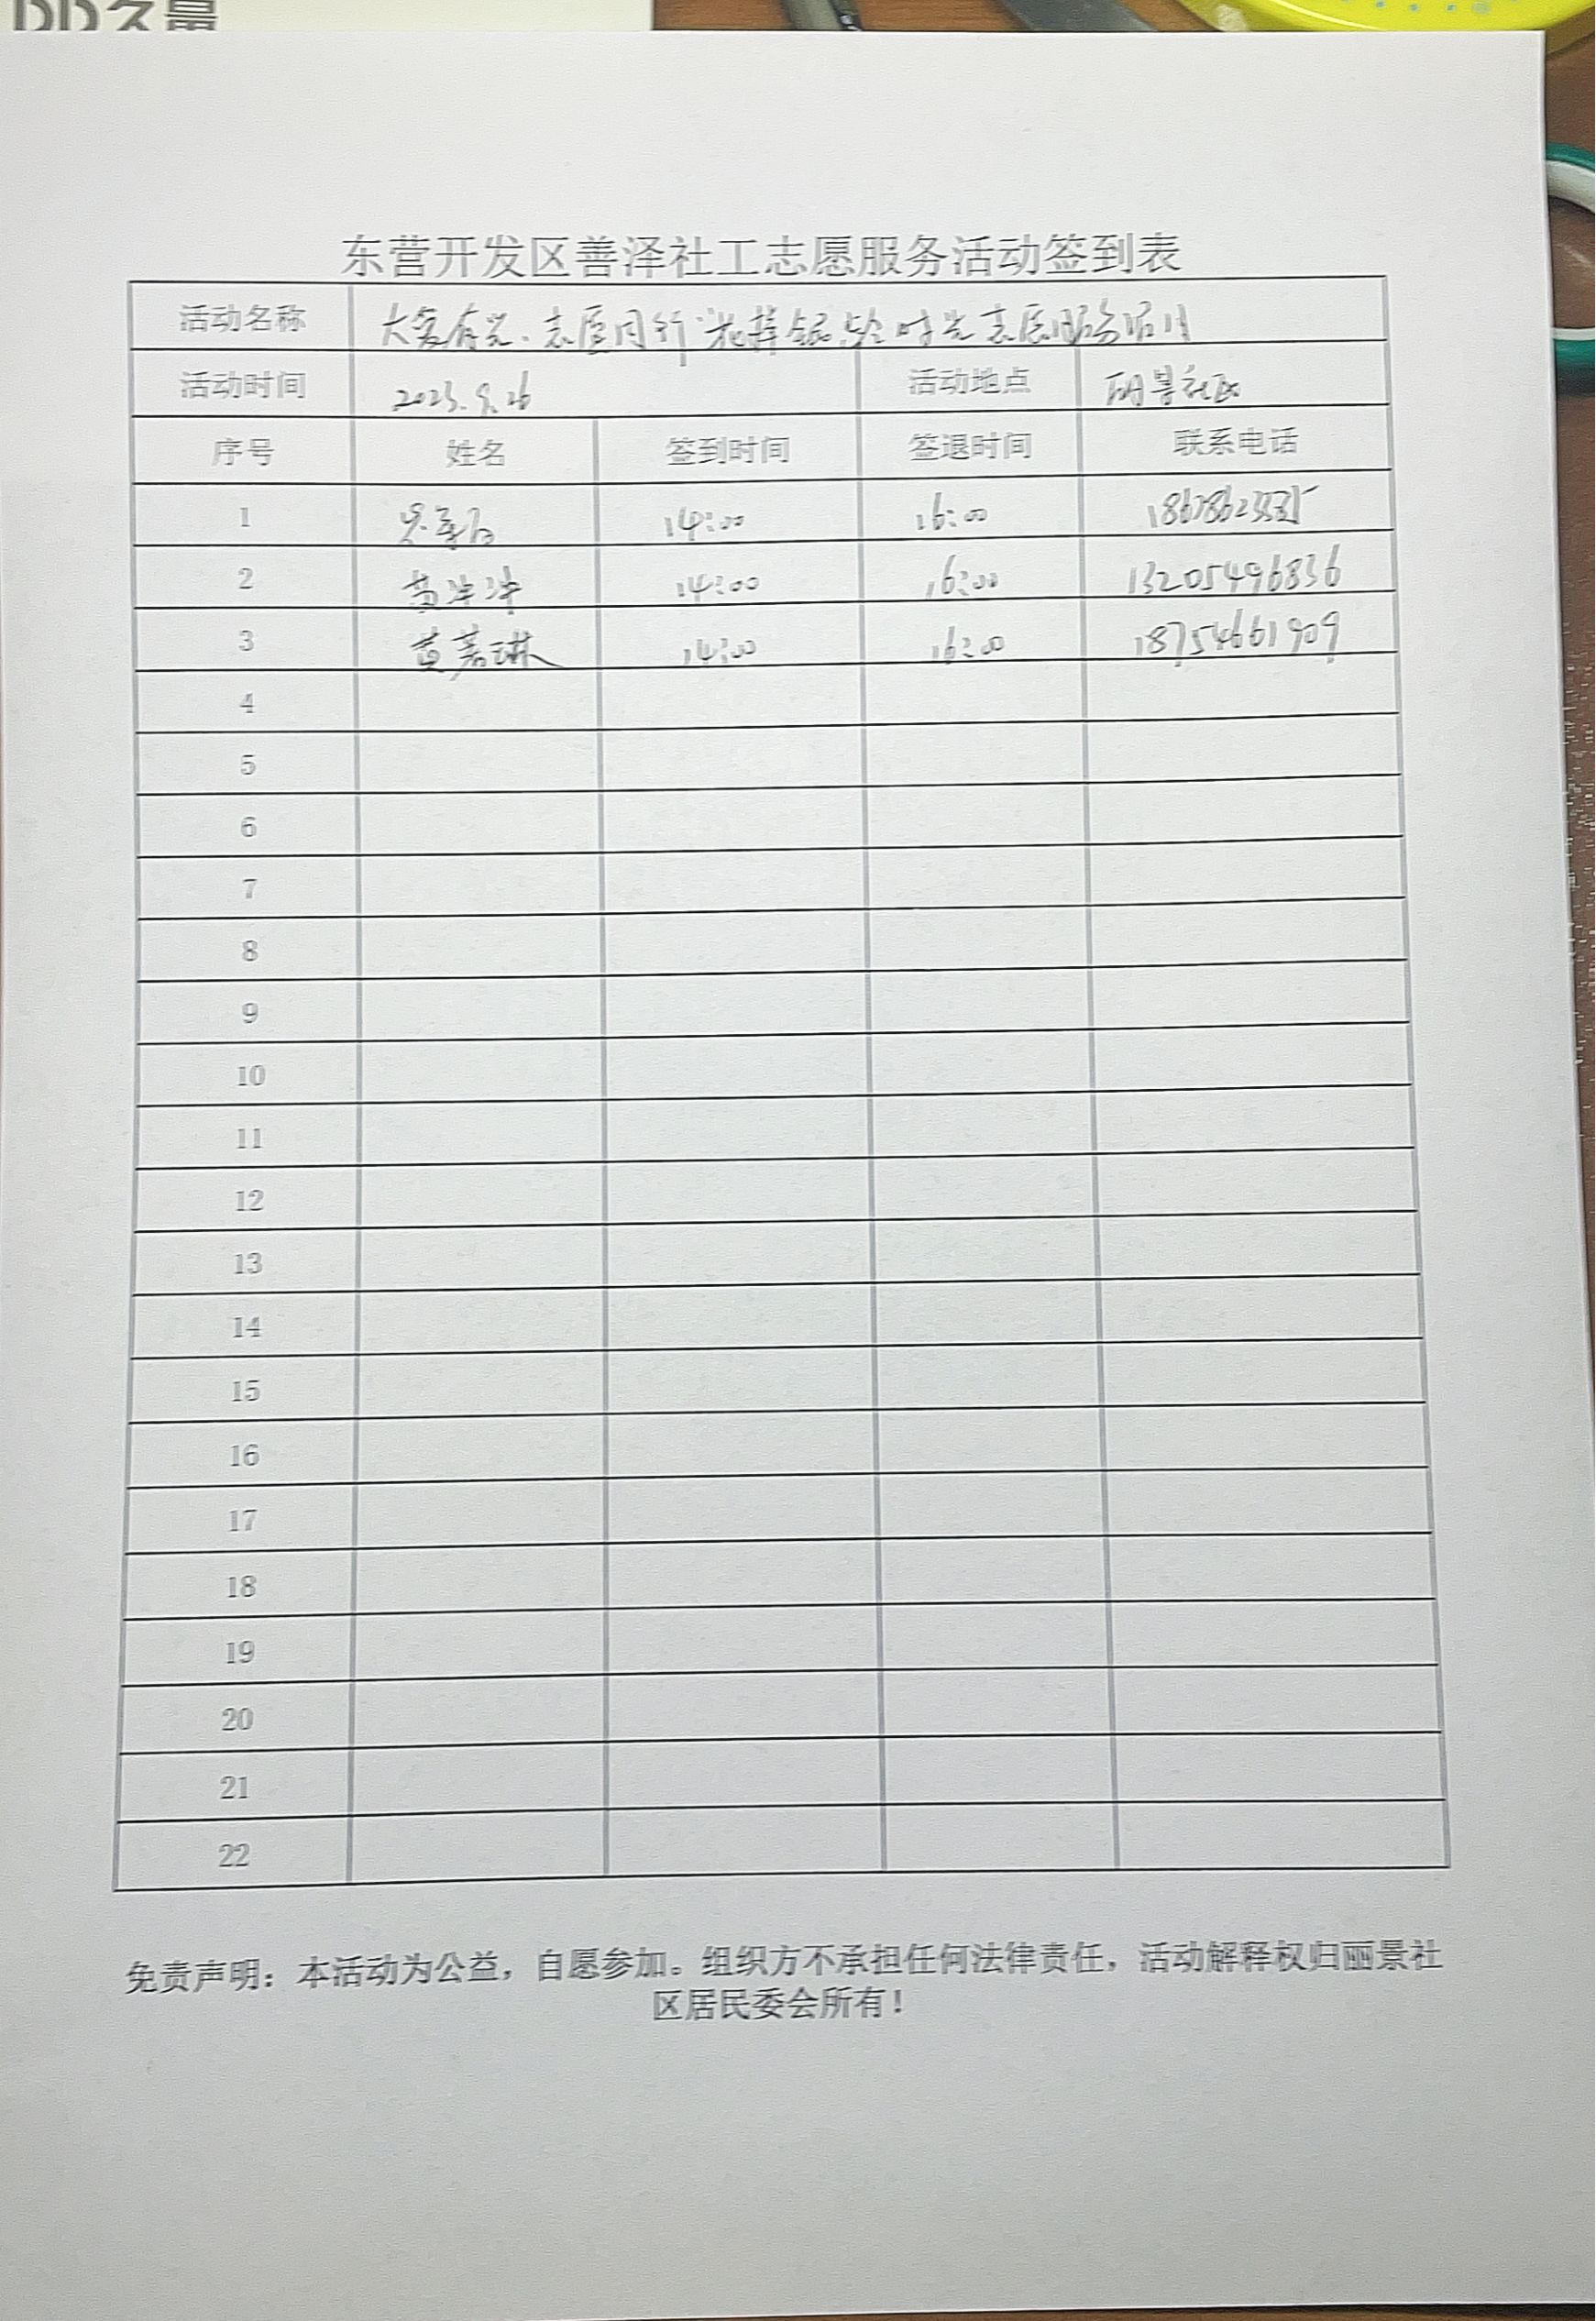 久量
东营开发区善泽社工志愿服务活动签到表
活动名称 大爱有光.志愿同行"光择银龄时光志愿服务活动
活动时间 2023.9.26 活动地点 丽景社区
序号 姓名 签到时间 签退时间 联系电话
1 14:00 16:00
2 14:00 16:00 13205496836
3 黄若琳 14:00 16:00 18754661909
4
5
6
7
8
9
10
11
12
13
14
15
16
17
18
19
20
21
22
免责声明：本活动为公益，自愿参加。组织方不承担任何法律责任，活动解释权归丽景社
区居民委会所有！